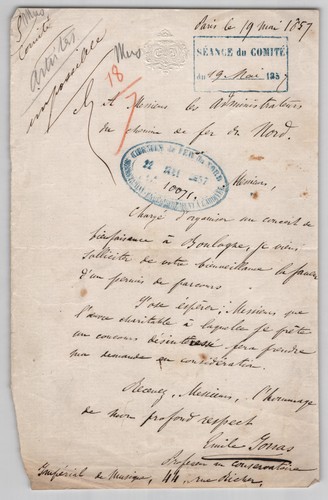 Paris le 19 mai 1857
Comité
Artistes
impossible
SÉANCE DU COMITÉ
du 19 Mai 1857
18
7
à Messieurs les Administrateurs
du chemin de fer du Nord.
CHEMIN DE FER DU NORD
22 MAI 1857
10071
Messieurs,
Chargé d'organiser un concert de
bienfaisance à Boulogne, je viens
solliciter de votre bienveillance la faveur
d'un permis de parcours
J'ose espérer, Messieurs que
l'œuvre charitable à laquelle je prête
un concours désintéressé fera prendre
ma demande en considération.
Recevez, Messieurs, l'hommage
de mon profond respect
Emile Jonas
Professeur au conservatoire
Impérial de Musique, 44, rue Richer